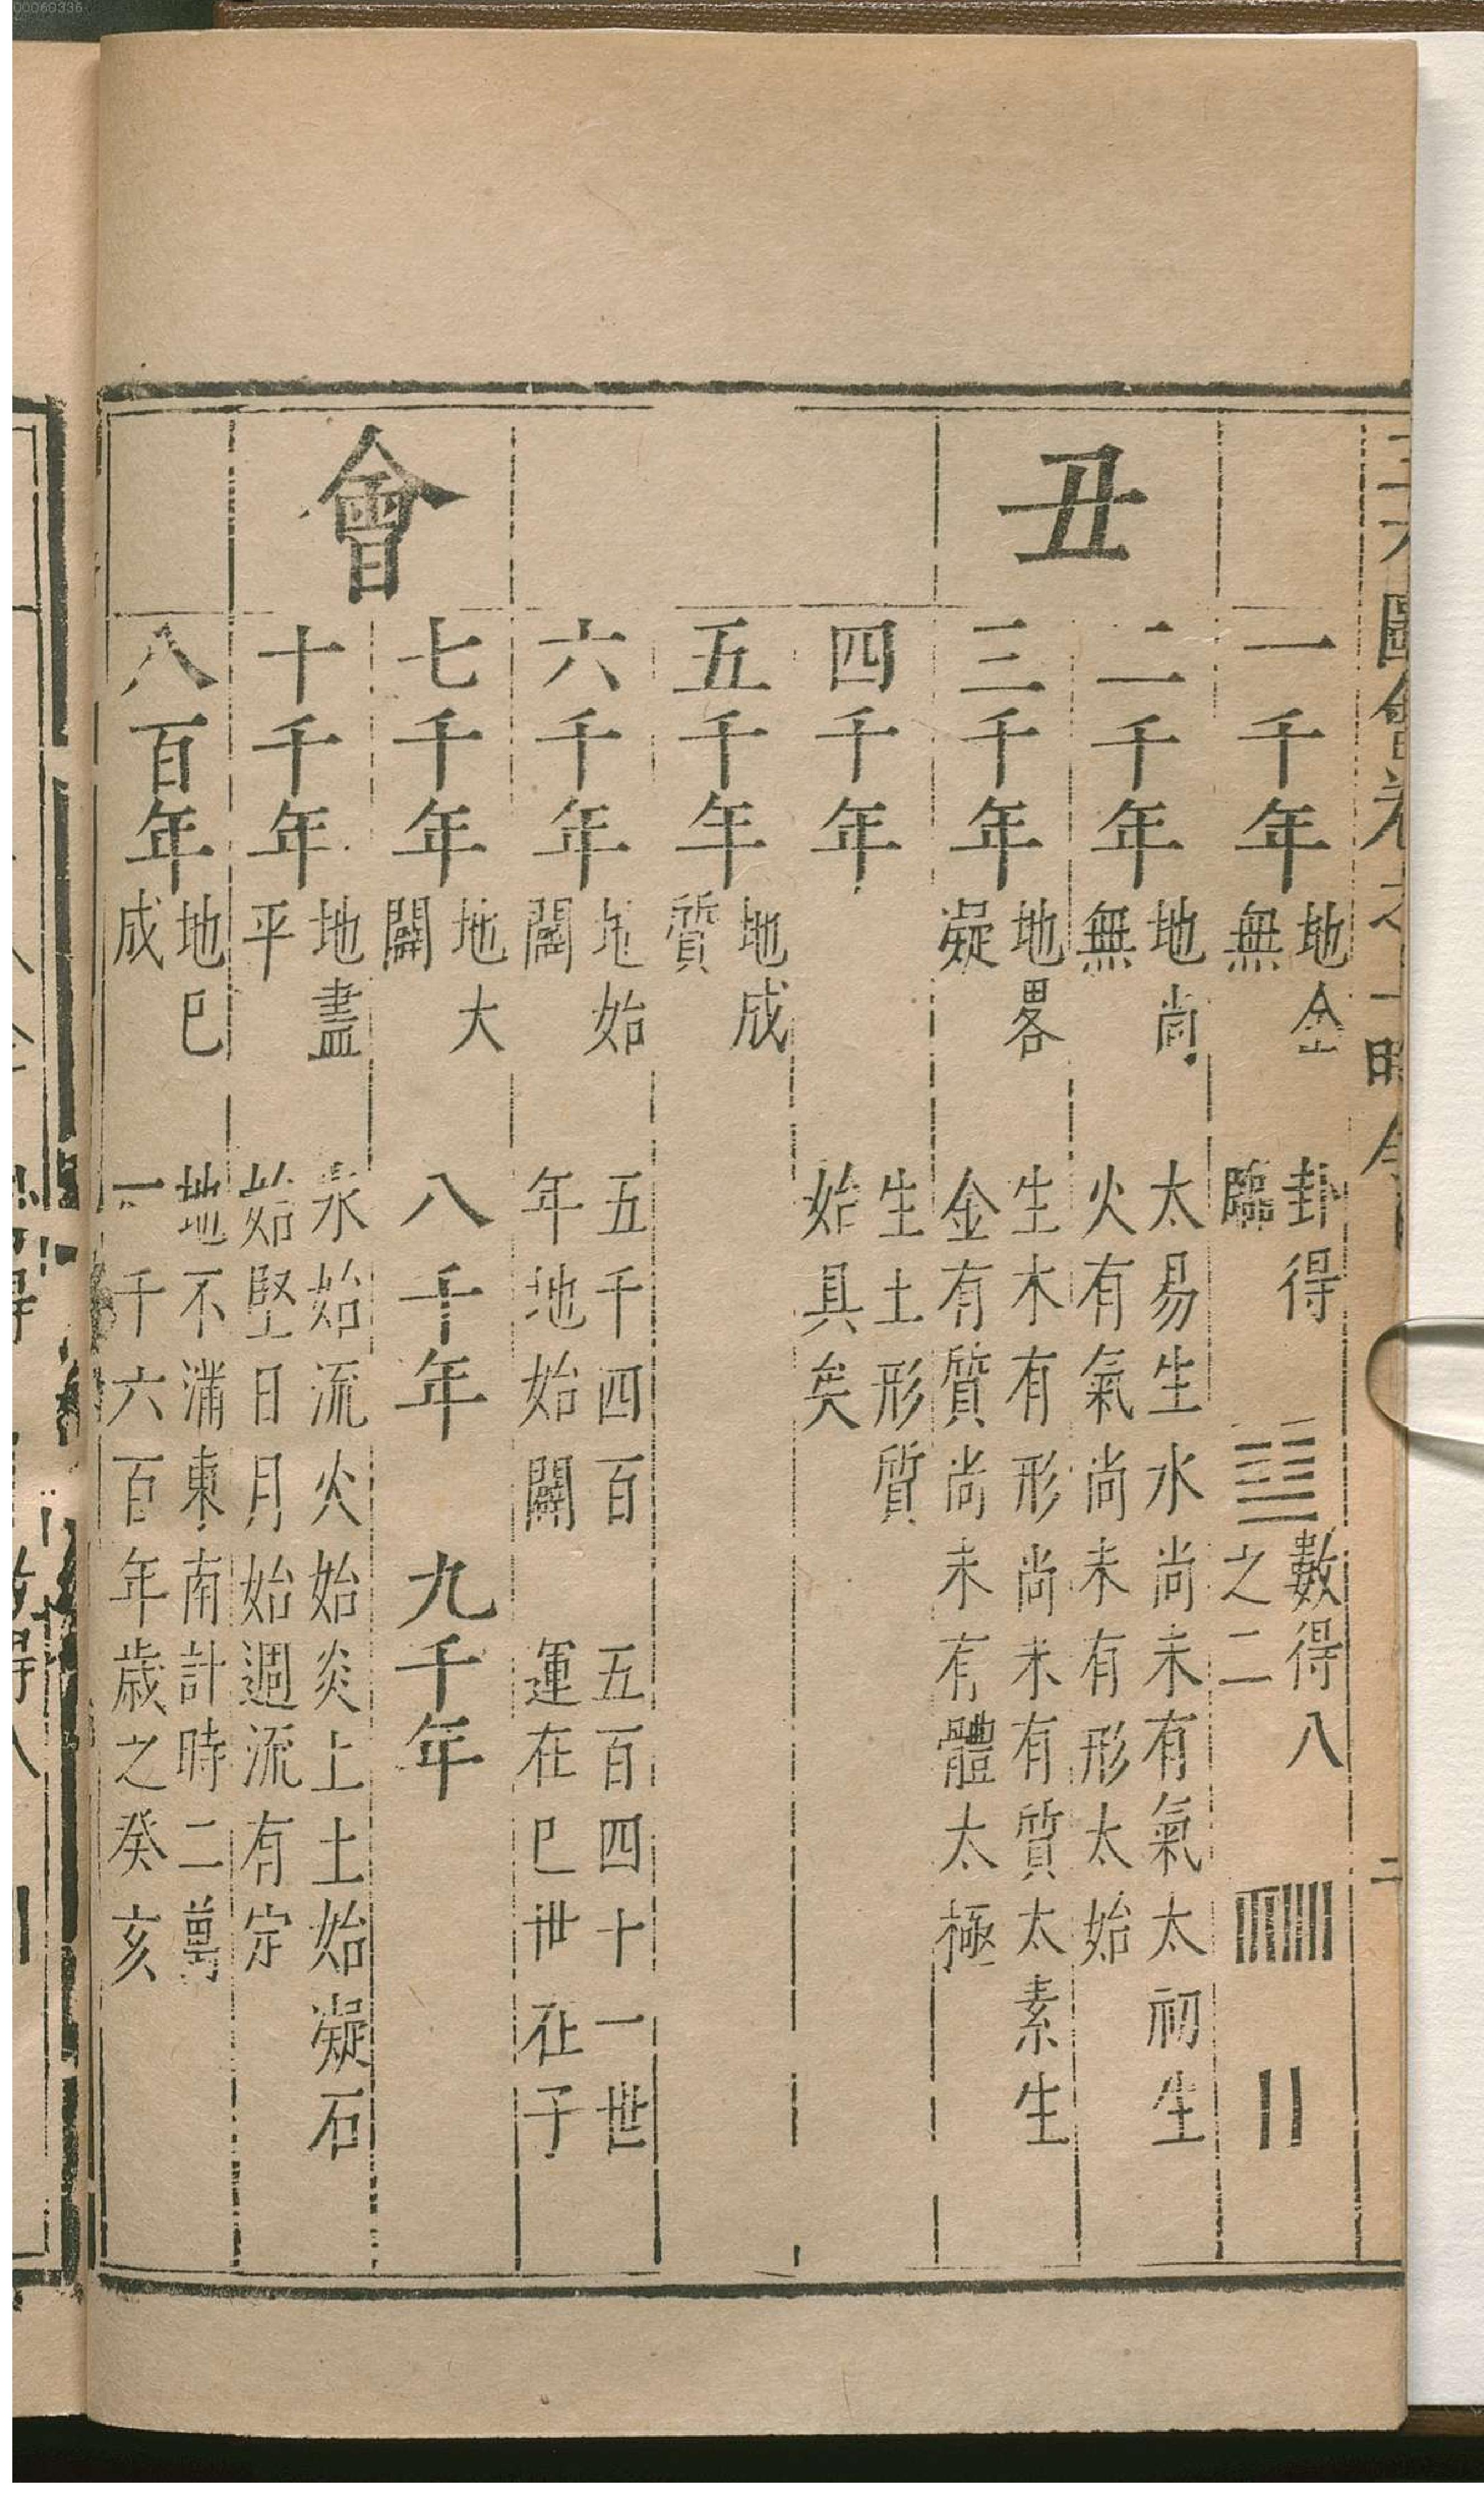 00060336
圖會卷之一時令
二
丑會
一千年
地全
無
卦得
臨
數得八
之二
二千年
地尚
無
太易生水尚未有氣太初生
火有氣尚未有形太始
三千年
地畧
凝
生木有形尚未有質太素生
金有質尚未有體太極
四千年
生土形質
始具矣
五千年
地成
質
六千年
地始
闢
五千四百
年地始闢
五百四十一世
運在巳世在子
七千年
地大
闢
八千年
九千年
十千年
地盡
平
水始流火始炎上土始凝石
始堅日月始週流有定
八百年
地巳
成
地不滿東南計時二萬
一千六百年歲之癸亥